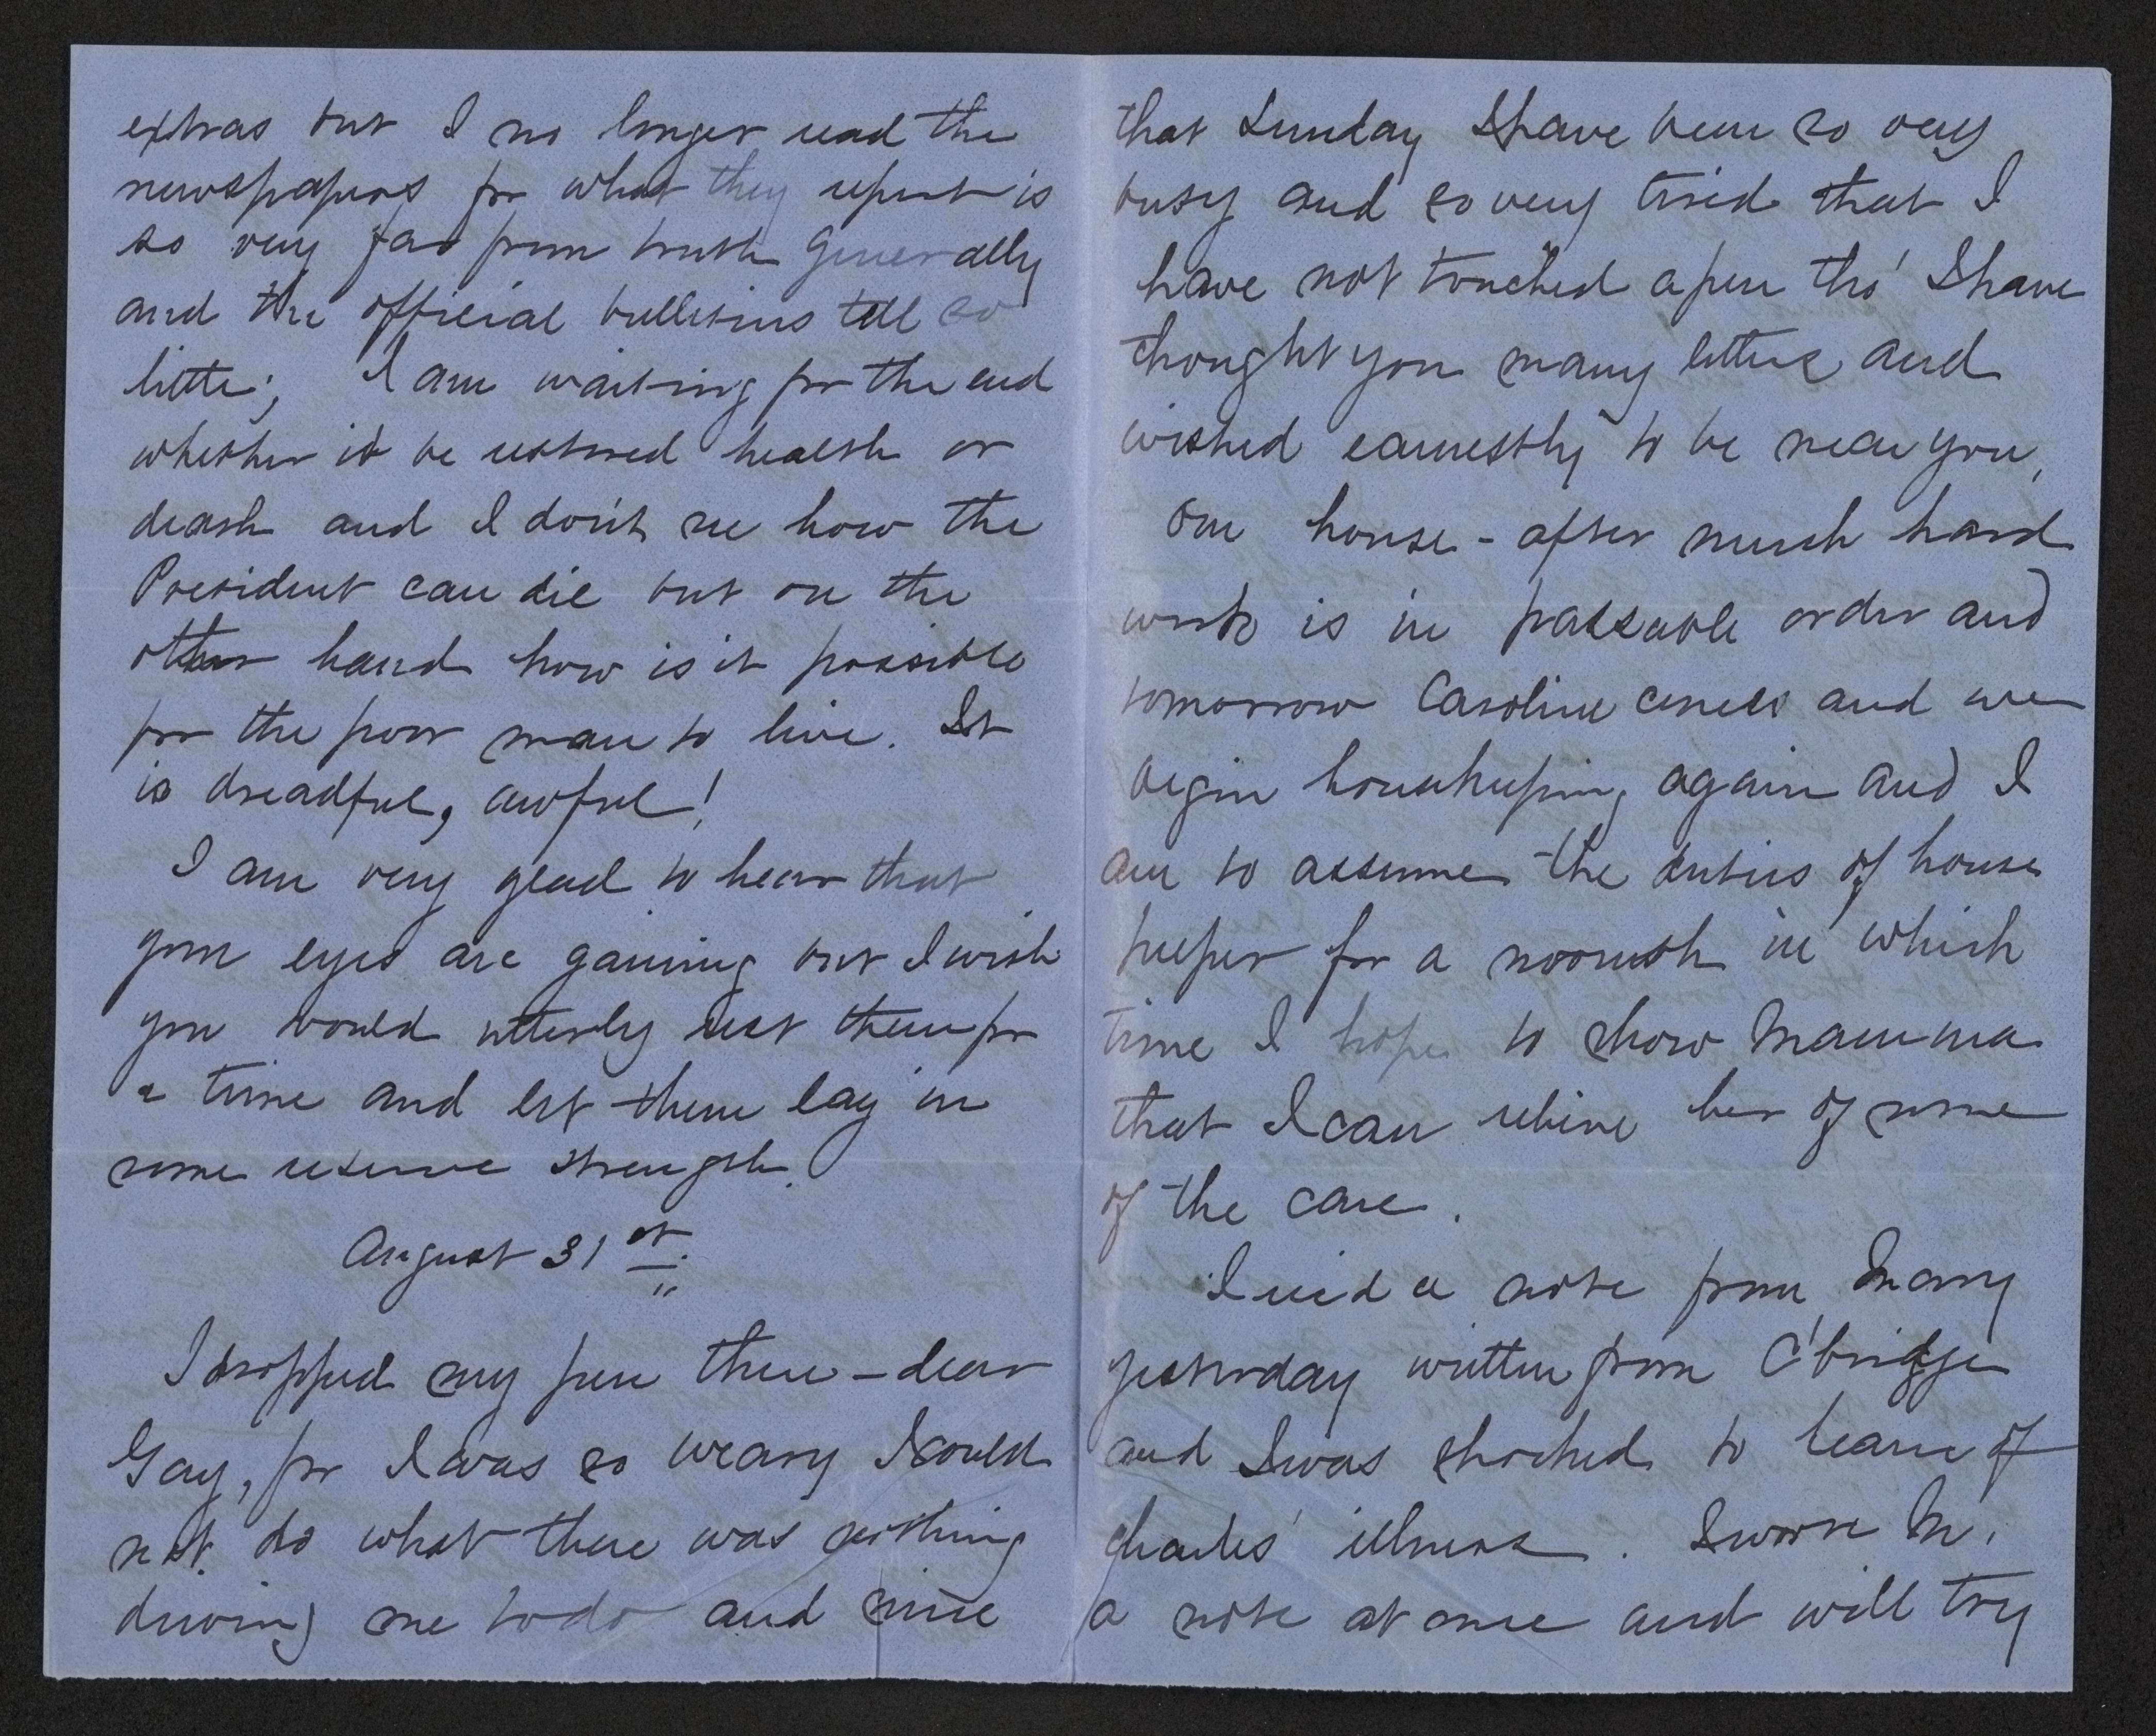 extras but I no longer read the
newspapers for what they report is
so very far from truth generally
and the official bulletins tell so
little; I am waiting for the end
whether it be restored health or
death and I don't see how the
President can die but on the
other hand how is it possible
for the poor man to live. It
is dreadful, awful!
I am very glad to hear that
your eyes are gaining but I wish
you would utterly rest them for
a time and let them lay in
some reserve strength.
August 31st
I dropped my pen there – dear
Gay, for I was so weary I could
not do what there was nothing
driving me to do and since
that Sunday I have been so very
busy and so very tired that I
have not touched a pen tho' I have
thought you many letters and
wished earnestly to be near you.
Our house – after much hard
work is in passable order and
tomorrow Caroline comes and we
begin housekeeping again and I
am to assume the duties of house
keeper for a month in which
time I hope to show Mamma
that I can relieve her of some
of the care.
I rec'd a note from Mary
yesterday written from C'bridge
and I was shocked to learn of
Charles' illness. I wrote M.
a note at once and will try